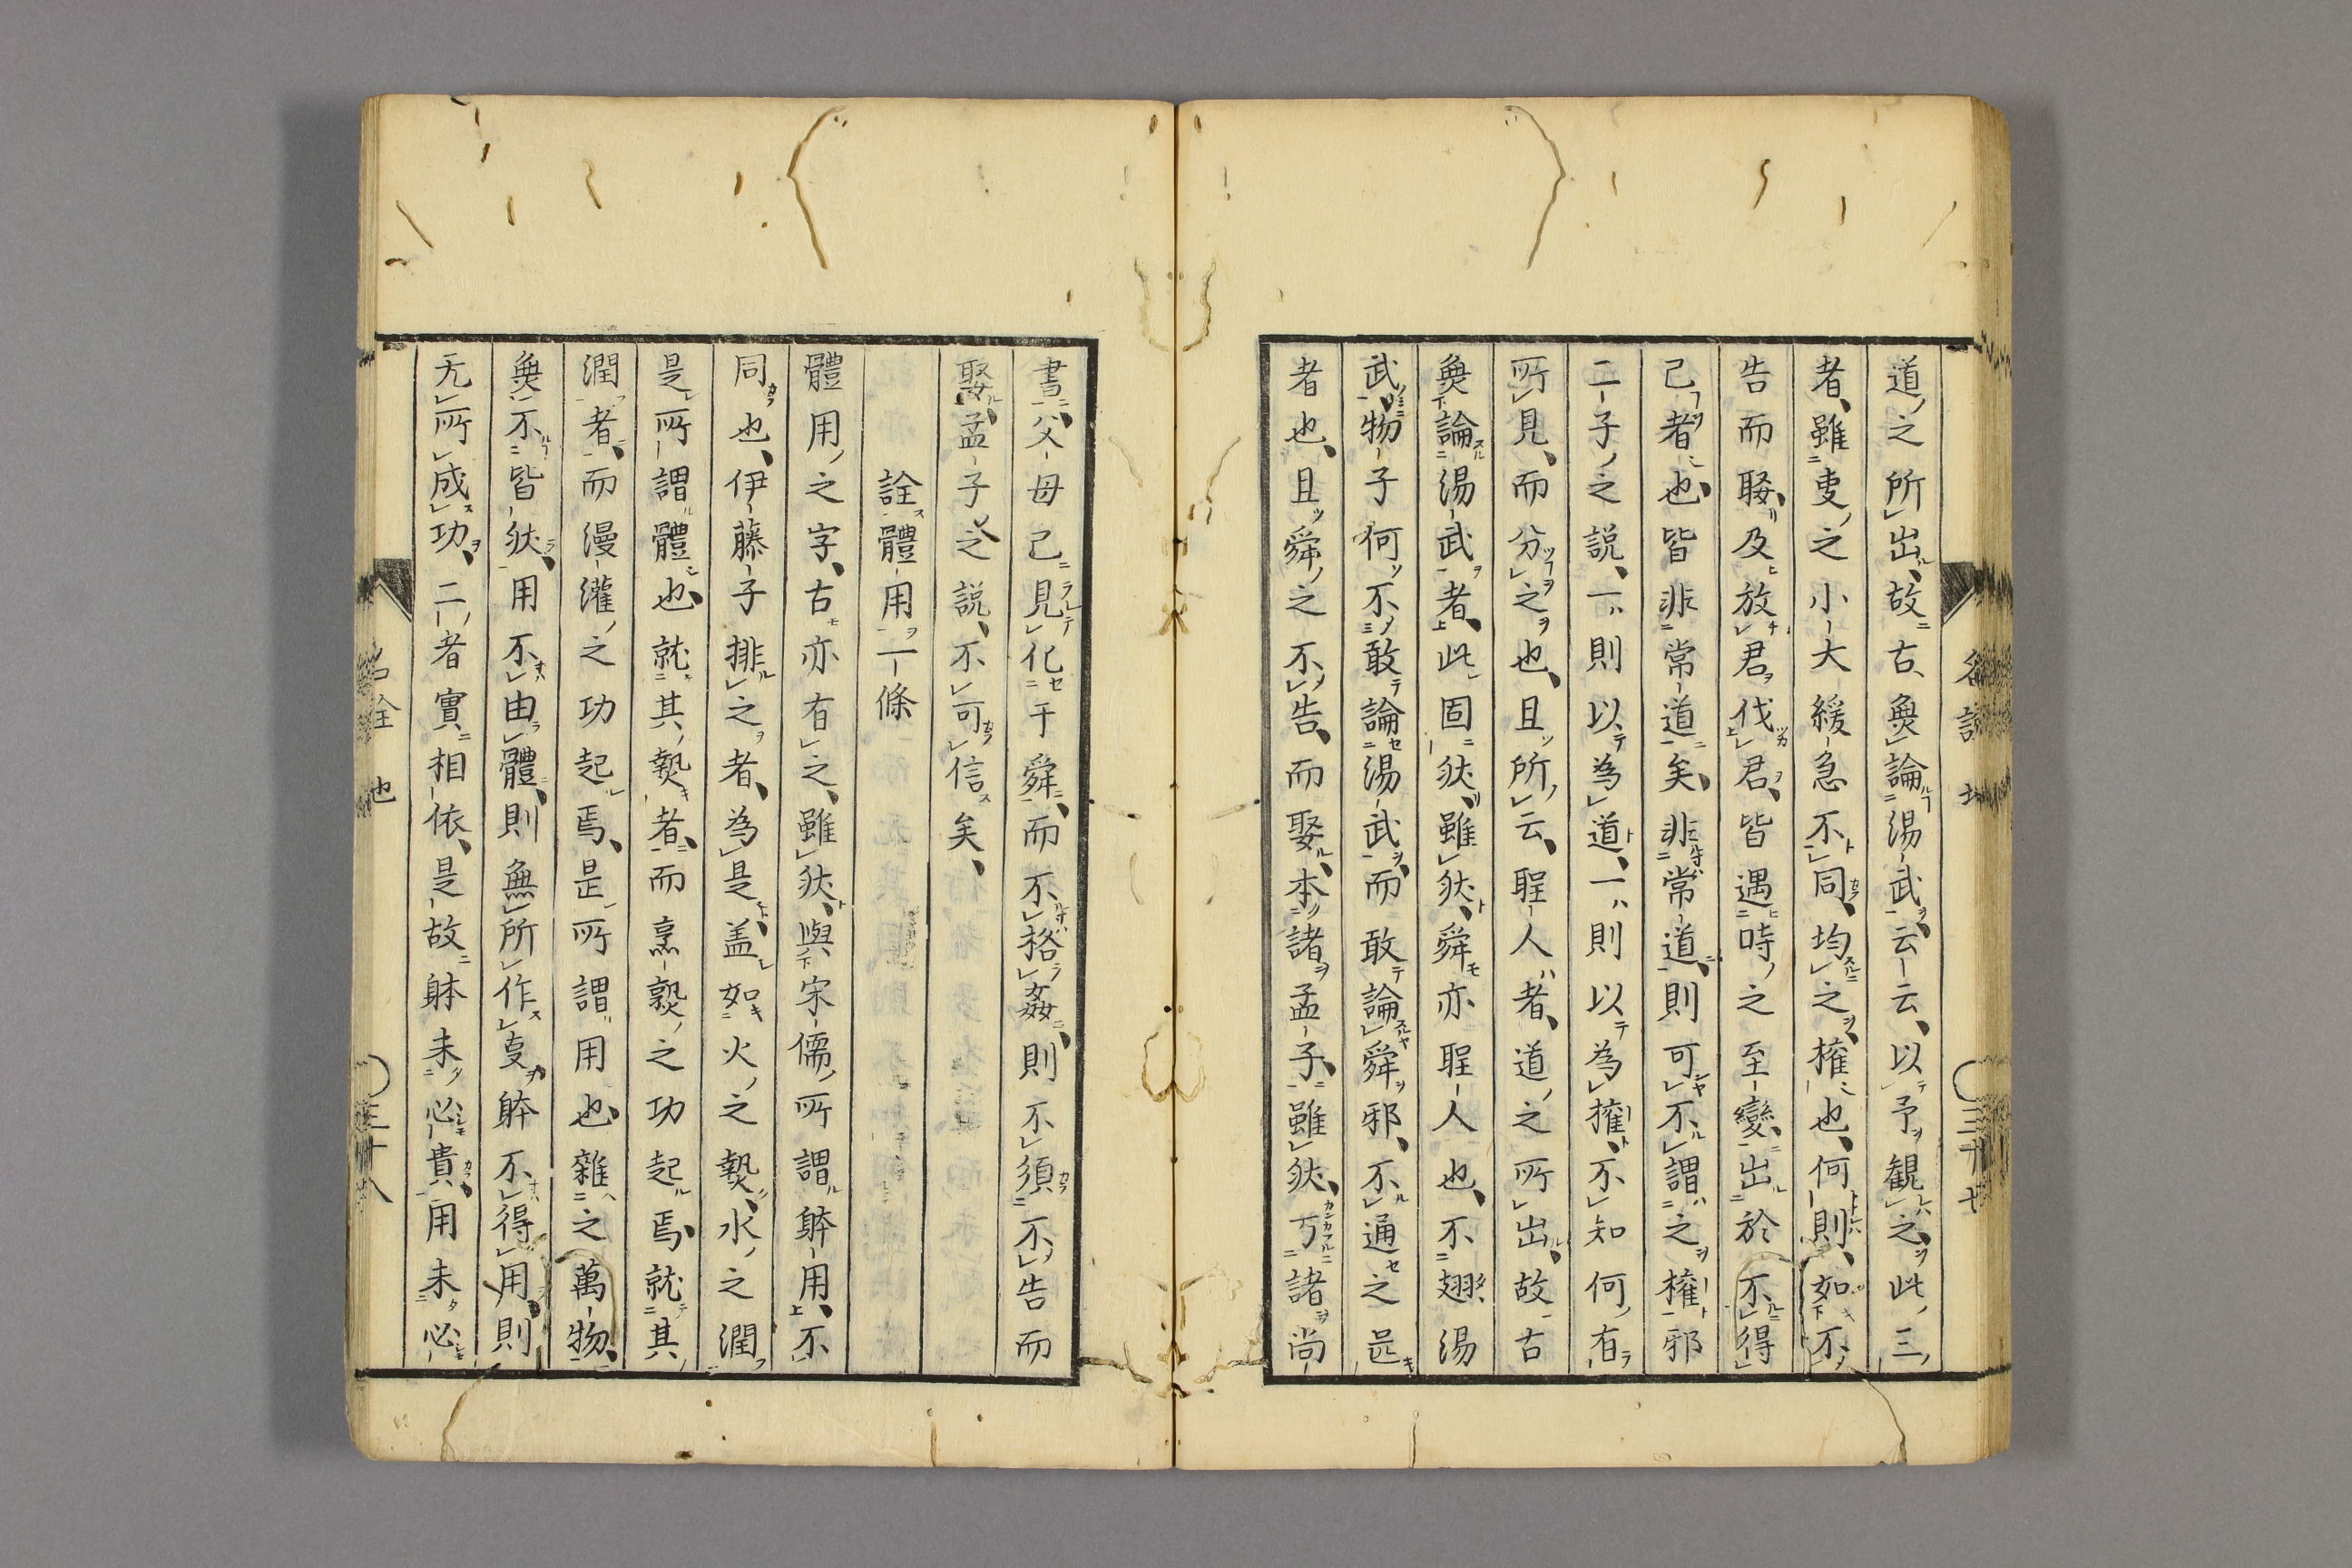 道之所出故古無論湯武云云以予観之此三
者雖吏之小大緩急不同均之権也何則如不
告而娶及放君伐君皆遇時之至變出於不得
已者也皆非常道矣非常道則可不謂之権邪
二子之説一則以為道一則以為権不知何有
所見而分之也且所云聖人者道之所出故古
無論湯武者此固然雖然舜亦聖人也不翅湯
武物子何不敢論湯武而敢論舜邪不通之甚
者也且舜之不告而娶本諸孟子雖然丂諸尚
書父母己見化于舜而不格姦則不須不告而
娶孟子之説不可信矣
詮體用一條
體用之字古亦有之雖然與宋儒所謂躰用不
同也伊藤子排之者為是盖如火之熱水之潤
是所謂體也就其熱者而烹熟之功起焉就其
潤者而漫灌之功起焉是所謂用也雖之萬物
無不皆然用不由體則無所作吏躰不得用則
无所成功二者實相依是故躰未必貴用未必
名詮 也
三十七
三十八